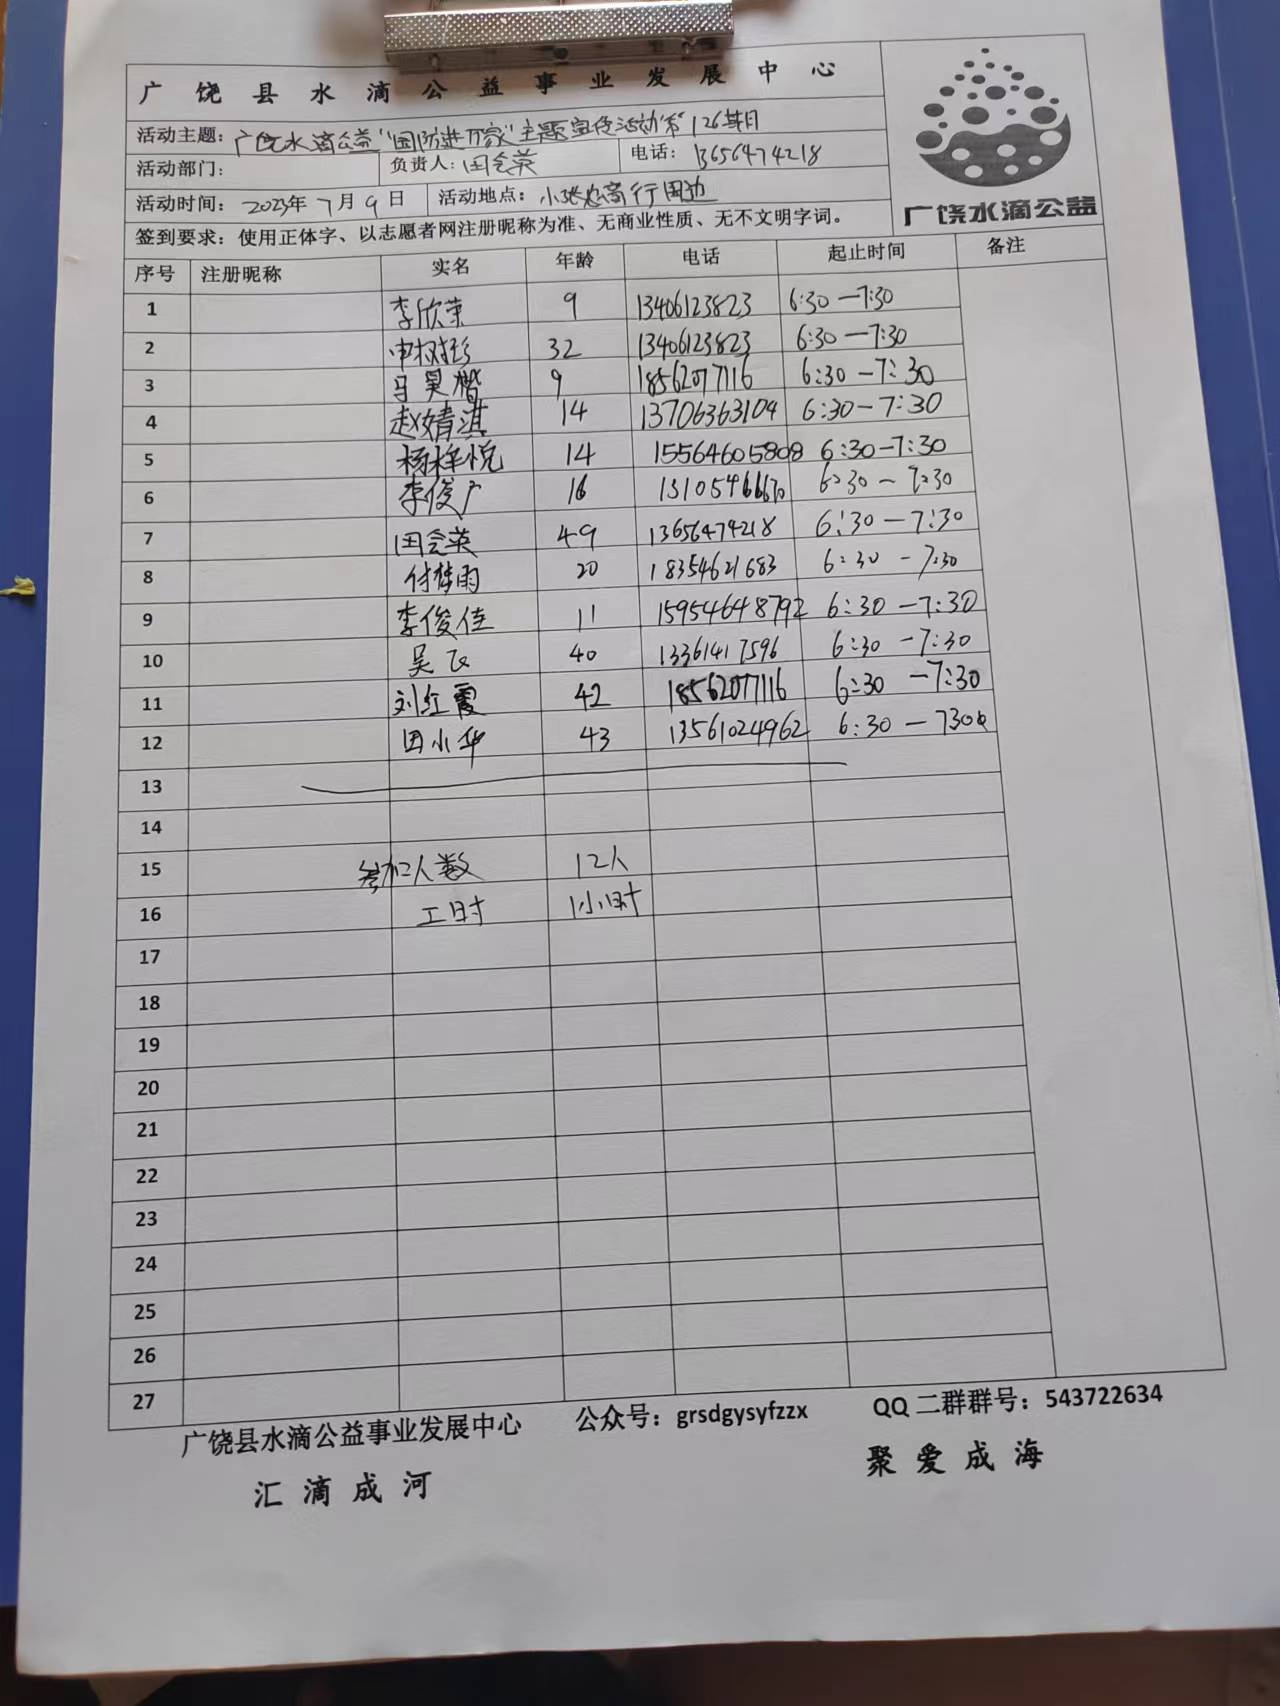 广饶县水滴公益事业发展中心
活动主题：广饶水滴公益"国防进万家"主题宣传活动第126期
活动部门： 负责人：田会英 电话：13656474218
活动时间：2023年7月9日 活动地点：小张农商行周边
签到要求：使用正体字、以志愿者网注册昵称为准、无商业性质、无不文明字词。
广饶水滴公益
序号 注册昵称 实名 年龄 电话 起止时间 备注
1 李欣荣 9 13406123823 6:30—7:30
2 申树彩 32 13406123823 6:30—7:30
3 马昊楷 9 18562077116 6:30—7:30
4 赵婧淇 14 13706363104 6:30—7:30
5 杨梓悦 14 15564605808 6:30—7:30
6 李俊广 16 13105466670 6:30—7:30
7 田会英 49 13656474218 6:30—7:30
8 付梦雨 20 18354621683 6:30—7:30
9 李俊佳 11 15954648792 6:30—7:30
10 吴飞 40 13361417596 6:30—7:30
11 刘红霞 42 18562077116 6:30—7:30
12 田小华 43 13561024962 6:30—730
13
14
15 参加人数 12人
16 工时 1小时
17
18
19
20
21
22
23
24
25
26
27
广饶县水滴公益事业发展中心 公众号：grsdgysyfzzx QQ二群群号：543722634
汇滴成河 聚爱成海